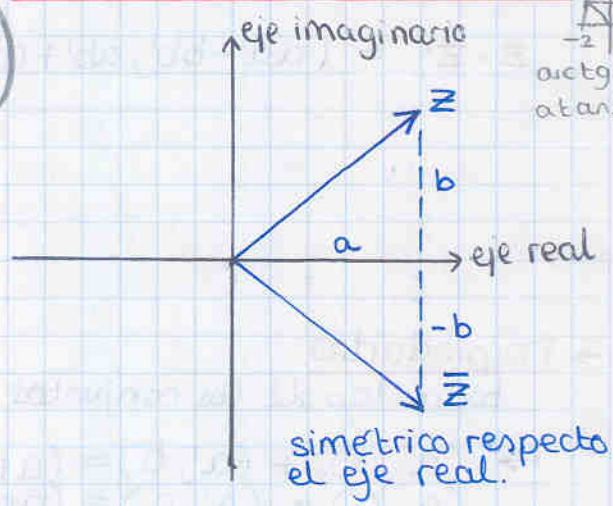 eje imaginario
-2
arctg
atan
Z
b
a
eje real
-b
Z̅
simétrico respecto
el eje real.